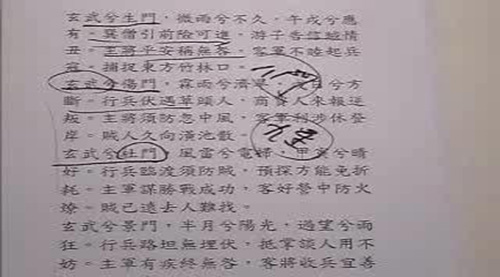 玄武兮生門，微雨兮不久，午戌兮應
有。異僧引前險可進，游子香信競情
丑。主將平安稱無咎，客軍不睦起兵
宣。捕捉東方竹林口。
玄武兮傷門，霖雨兮濟
日兮方
斷。行兵伏遇草頭人，商賣人來報逆
叛。主將須防忽中風，客軍利涉休登
岸。賊人久向潢池散。
玄武兮杜門，風雷兮電歸，甲寅兮晴
好。行兵臨渡須防賊，預探方能免折
耗。主軍謀勝戰成功，客好營中防火
燎。賊已遠去人難找。
玄武兮景門，半月兮陽光，過望兮雨
狂。行兵路坦無埋伏，抵掌談人用不
妨。主軍有疾終無咎，客將收兵宜善